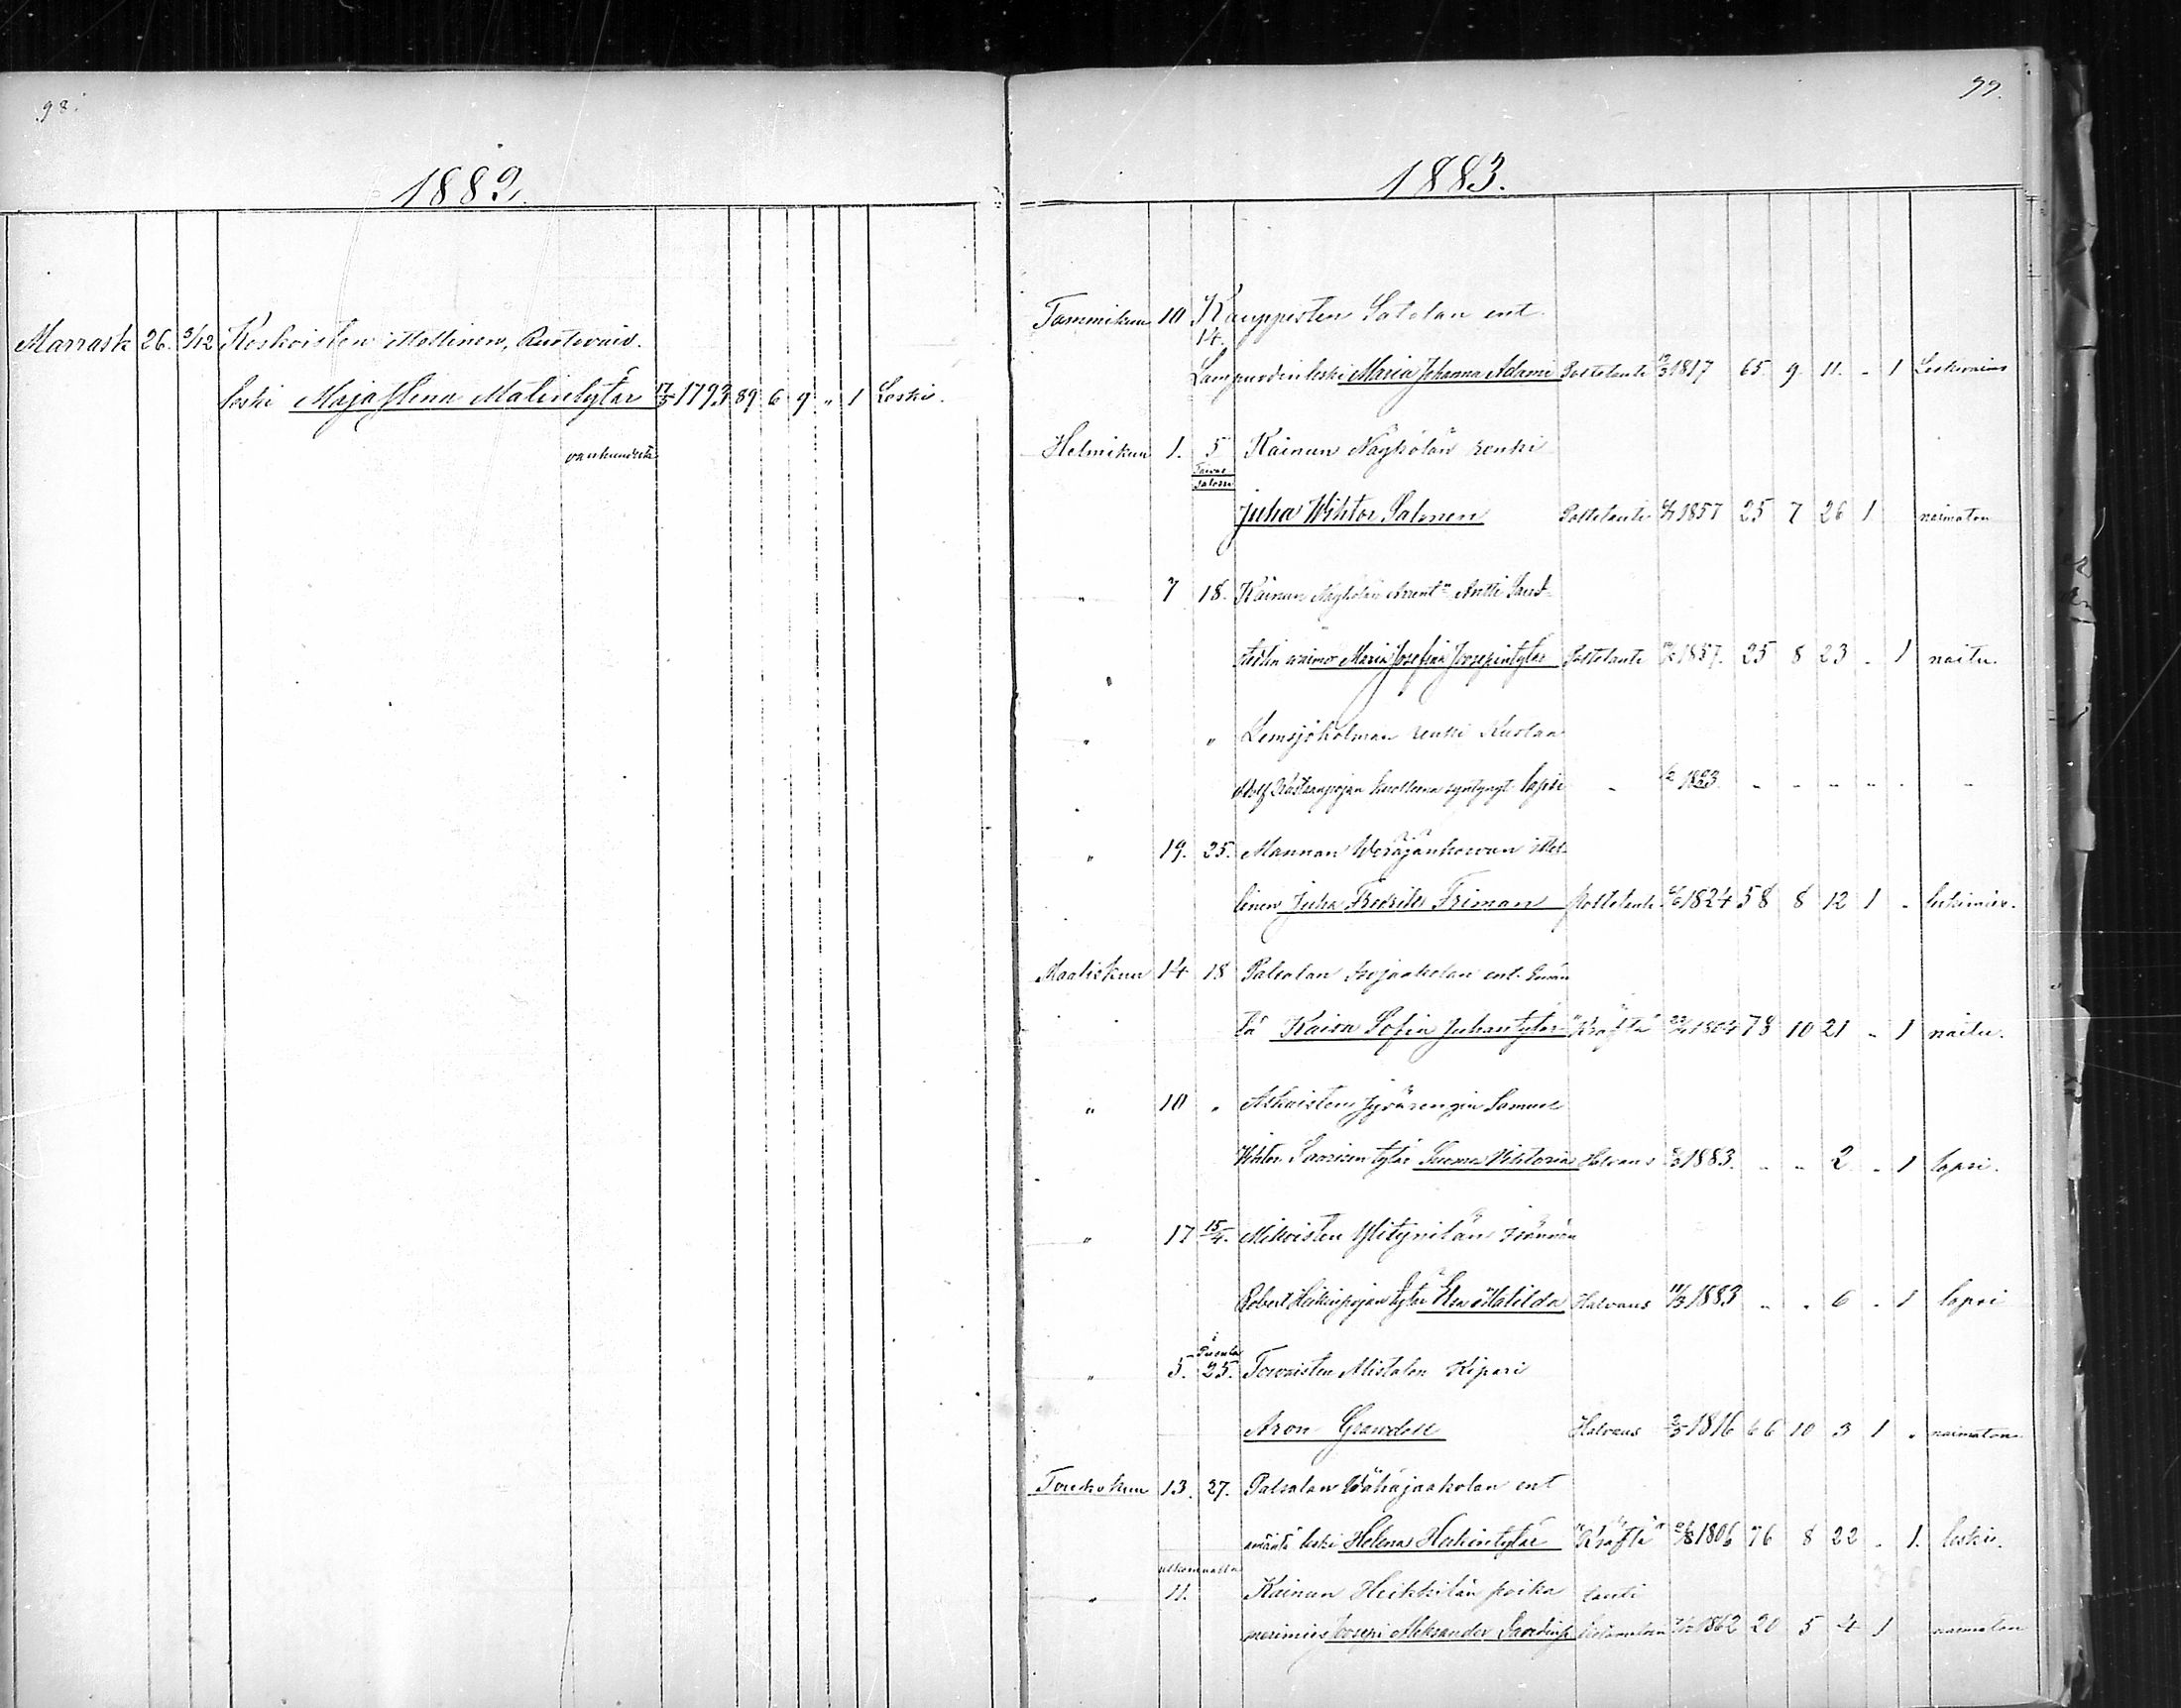 98.
1882.
Marrask 26. 3/12 Koskoisten Mollinen, Ruotuvaiv.
leski Maja Lena Matintytär 17/5 1793 89 6 9 „ 1 Leski.
vanhuudesta
99.
1883.
Tammikuu 10 14. Kauppisten Satolan ent.
Lampuodin leski Maria Johanna Adami Polttotauti 1817 65 9 11. „ 1 Leskivaimo
Helmikuu 1. 5 Kainun Näyhölän renki
Juha Wihtor Salonen Polttotauti 1857 25 7 26 1 naimaton
„ 7 18. Kainun Näyhölän Antti
vaimo Maria Josefina Joosepintytär Polttotauti 1857. 25 8 23 „ 1 naitu.
„ „ Lemsjöholman renki Kustaa
Adolf Kustaanpojan kuolleena syntynyt lapsi „ 1883. „ „ „ „ „ „
„ 19. 25. Mannan Weräjänkorvan Mol-
linen Juha Fredrik Friman Polttotauti 1824 58 8 12 1 „ leskimies.
Maaliskuu 14 18 Palsalan Isojaakolan ent. Emän
tä Kaisa Sofia Juhantytär "Kräftä" 1804 78 10 21 „ 1 naitu.
„ 10 „ Askaisten rengin Samuel
Wihtor Saarisen tytär Suoma Wiktoria Halvaus 1883. „ „ 2 „ 1 lapsi.
„ 17 15/4. Mikoisten Ylitynilän Isännän
Robert Heikinpojan tytär Elsa Matilda Halvaus 11/3 1883 „ „ 6 „ 1 lapsi
„ 5. 25. Towaisten Alistalon
Aron Grandell Halvaus 1816 66 10 3 1 „ naimaton
Toukokuu 13. 27. Palsalan Wähäjaakolan ent
emäntä leski Helena Heikintytär "Kräftä" 1806 76 8 22 „ 1. leski.
ulkomailla
„ 11. Kainun Heikkilän poika tauti
merimies Joosepi Aleksander 1862 20 5 4 1 naimaton